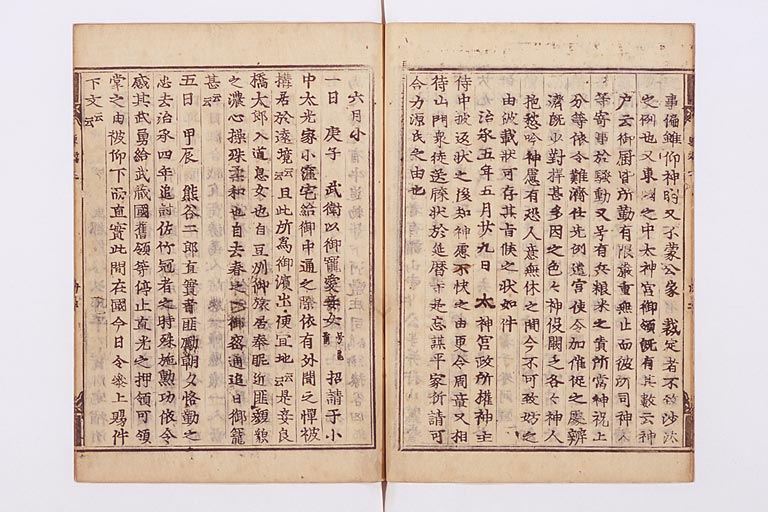 事偏雖仰神明又不蒙公家 裁定者不能沙汰
之例也又東國之中太神宮御領既有其數云神
户云御厨皆所勤有限嚴重無止而彼所司神人
等寄事於騷動又号有兵粮米之責所當神税上
分等依令難濟任先例遣宮使令加催促之處辨
濟既少對捍甚多因之色々神役闕乏各々神人
抱愁吟神慮有恐人意無休之間今不可致妨之
由被載狀可存其旨候之狀如件
治承五年五月廿九日 太神宮政所權神主
侍中披返狀之後知神慮不快之由更令周章又相
待山門衆徒送牒狀於延暦寺是忘謀平家祈請可
合力源氏之由也
六月小
一日 庚子 武衛以御寵愛妾女号龜前招請于小
中太光家小窪宅給御中通之際依有外聞之憚被
搆居於遠境云云且此所為御濱出便宜地云云是妾良
橋太郎入道息女也自豆州御旅居奉昵近匪顏貌
之濃心操殊柔和也自去春之比御密通追日御寵
甚云云
五日 甲辰 熊谷二郎直實者匪勵朝夕恪勤之
忠去治承四年追討佐竹冠者之時殊施勲功依令
感其武勇給武藏國舊領等停止直光之押領可領
掌之由被仰下而直實此間在國今日令參上賜件
下文云云